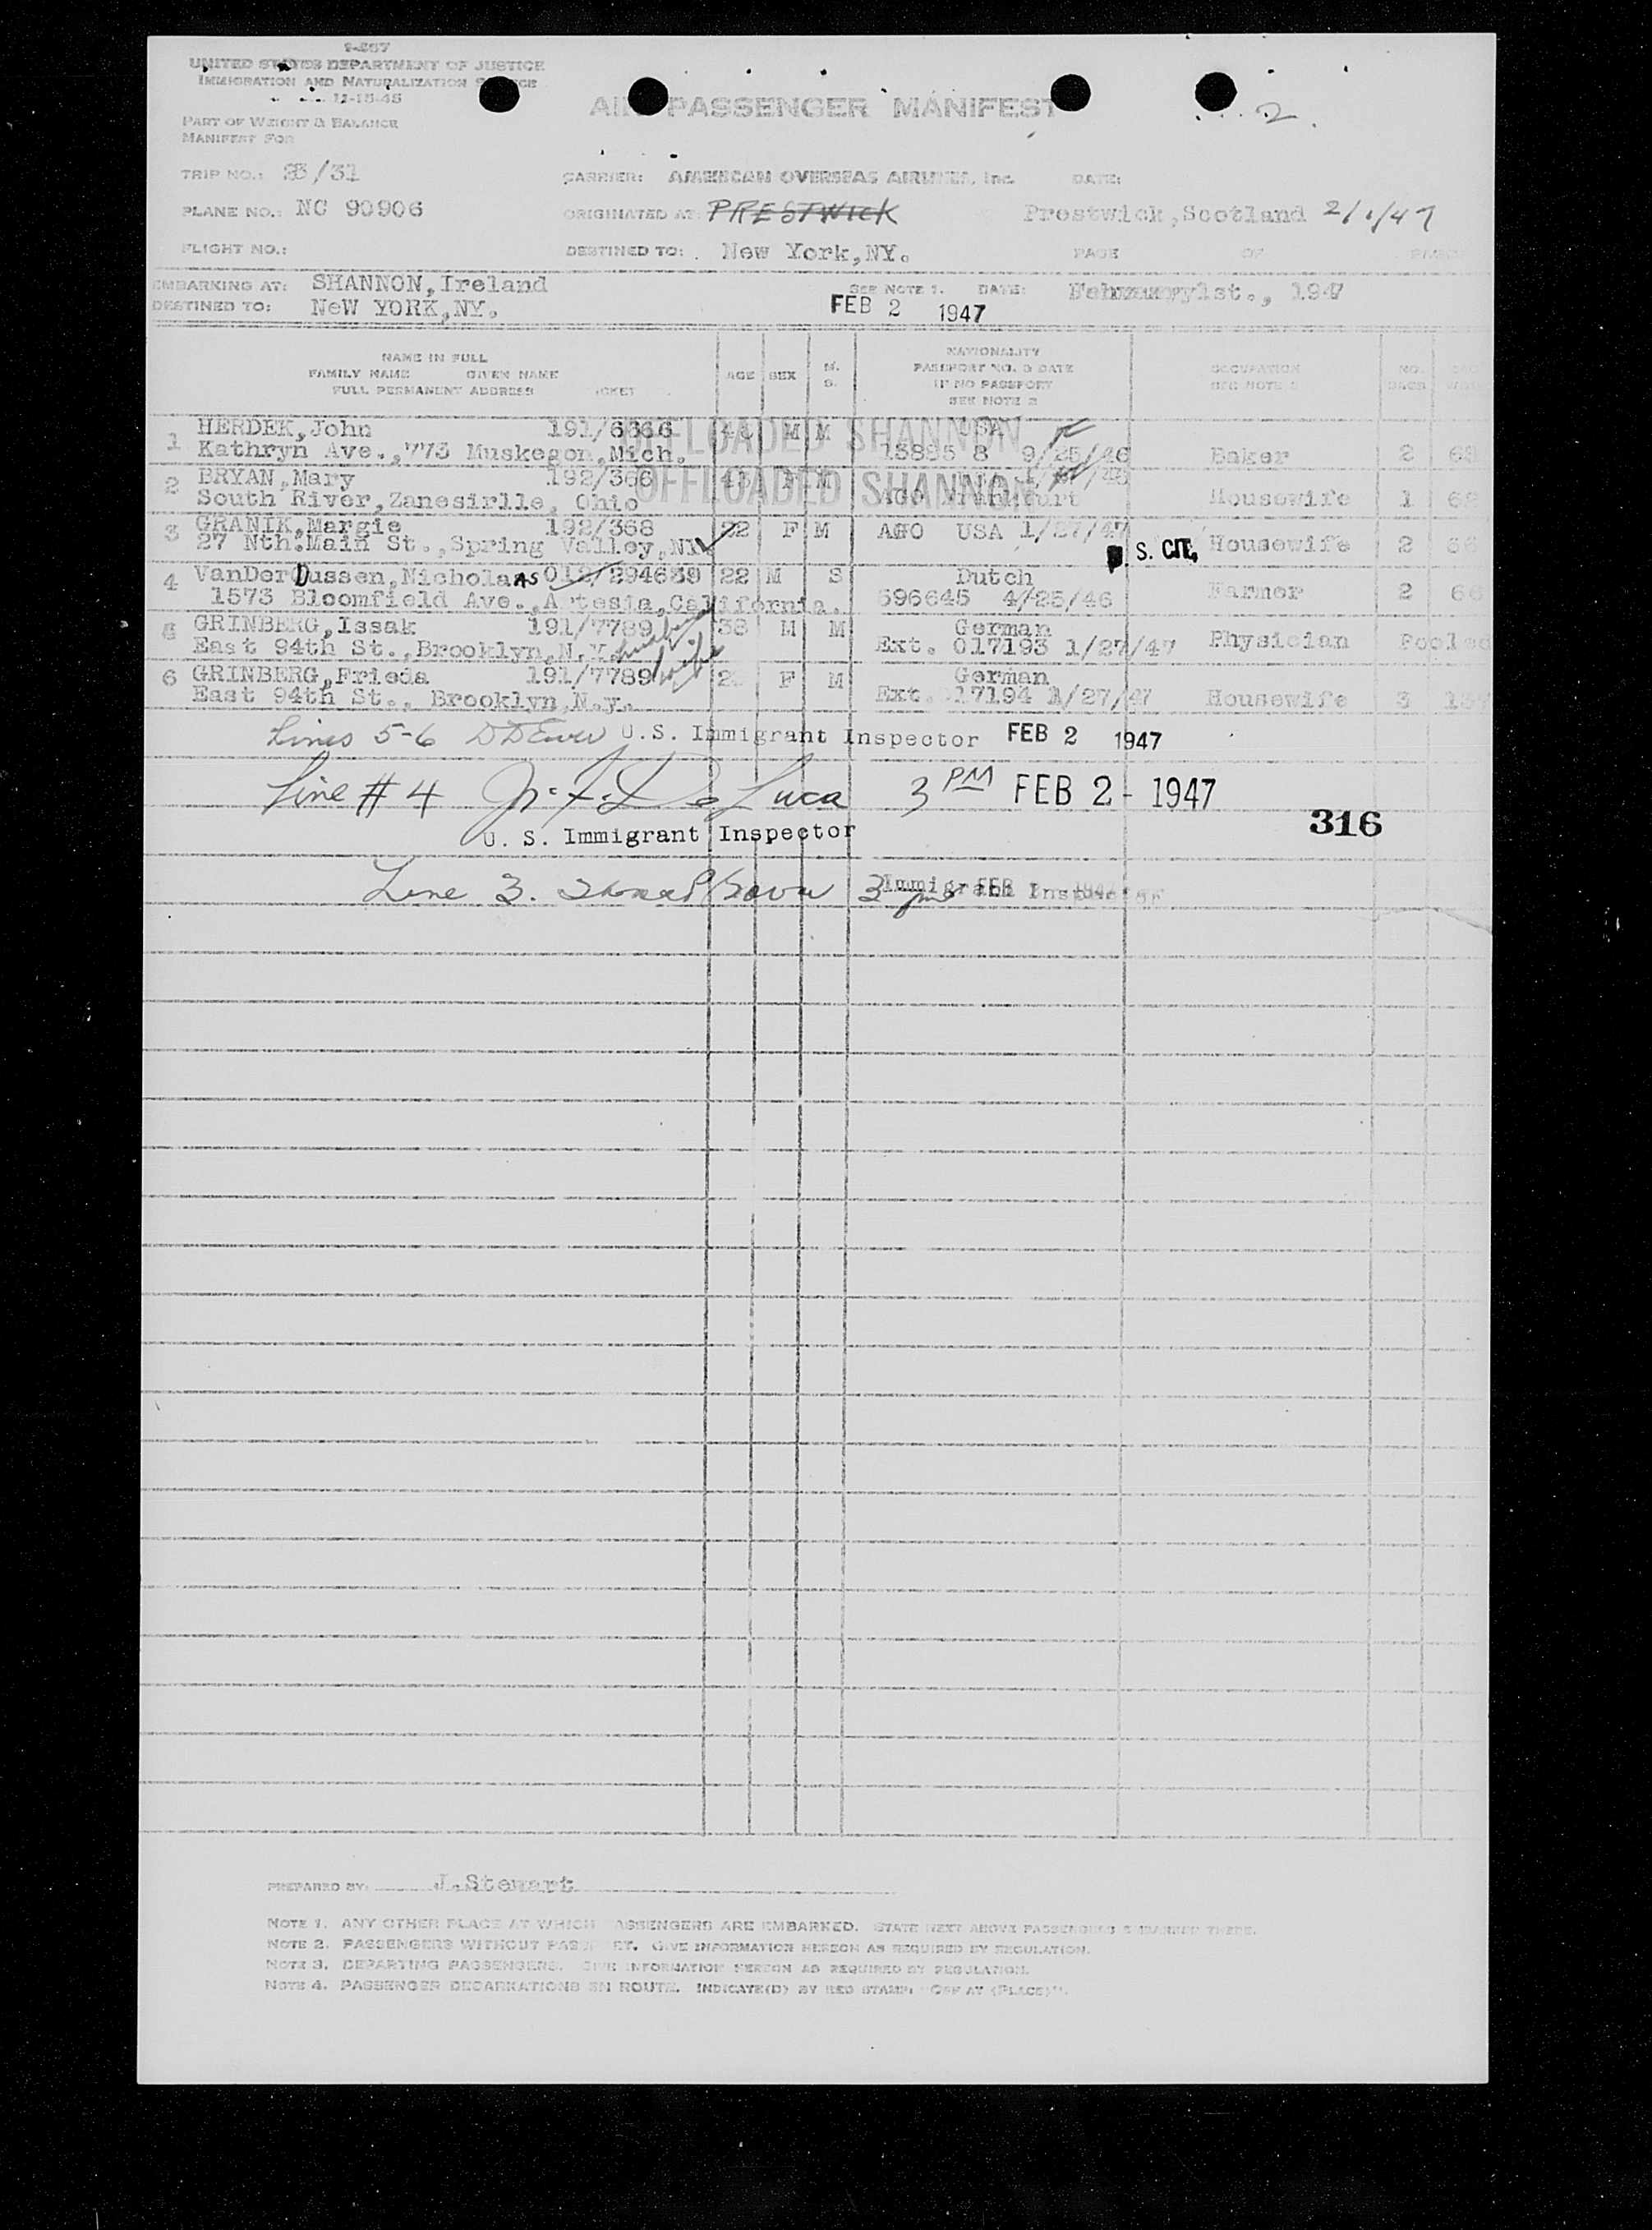 UNITED STATES DEPARTMENT OF JUSTICE
IMMIGRATION AND NATURALIZATION
11-15-45
PART OF WEIGHT & BALANCE
MANIFEST FOR
AIR PASSENGER MANIFEST
2
TRIP NO.: /31 CARRIER: AMERICAN OVERSEAS AIRLINES, Inc. DATE:
PLANE NO.: NC 90906 ORIGINATED AT: PRESTWICK Prestwick, Scotland 2/1/47
FLIGHT NO.: DESTINED TO: New York,NY. PAGE OF
EMBARKING AT: SHANNON,Ireland SEE NOTE 1. DATE: 1st., 1947
DESTINED TO: NeW YORK,NY. FEB 2 1947
NAME IN FULL
FAMILY NAME GIVEN NAME
FULL PERMANENT ADDRESS
AGE SEX M. S.
NATIONALITY
PASSPORT NO. & DATE
IF NO PASSPORT
SEE NOTE 2
OCCUPATION
SEE NOTE
NO.
BAGS
1 HERDEK,John 191/6666 M M USA
Kathryn Ave.,773 Muskegon,Mich. 9/25/46 Baker 2
OFFLOADED SHANNON
2 BRYAN,Mary 192/366 F M
South River,Zanesirlle, Ohio Housewife 1
OFFLOADED SHANNON
3 GRANIK,Margie 192/368 22 F M AGO USA 1/27/47
27 Nth.Main St.,Spring Valley,NY S. CIT. Housewife 2
4 VanDerDussen,Nicholaas 012/294639 22 M S Dutch
1573 Bloomfield Ave.,Artesia,California. 596645 4/25/46 Farmer 2
5 GRINBERG,Issak 191/7789 husband 38 M M German
East 94th St.,Brooklyn,N.Y. Ext. 017193 1/27/47 Physician Pooled
6 GRINBERG,Frieda 191/7789 wife F M German
East 94th St., Brooklyn,N.y. Ext. 017194 1/27/47 Housewife 3
Lines 5-6 U.S. Immigrant Inspector FEB 2 1947
Line # 4 De Luca 3 PM FEB 2 - 1947
316
U. S. Immigrant Inspector
Line 3. 3 pm Immigrant Inspector FEB
PREPARED BY: J.Stewart
NOTE 1. ANY OTHER PLACE AT WHICH PASSENGERS ARE EMBARKED. STATE NEXT ABOVE PASSENGERS EMBARKED THERE.
NOTE 2. PASSENGERS WITHOUT PASSPORT. GIVE INFORMATION HEREON AS REQUIRED BY REGULATION.
NOTE 3. DEPARTING PASSENGERS. GIVE INFORMATION HEREON AS REQUIRED BY REGULATION.
NOTE 4. PASSENGER DEBARKATIONS EN ROUTE. INDICATE(D) BY RED STAMP: "OFF AT (PLACE)".